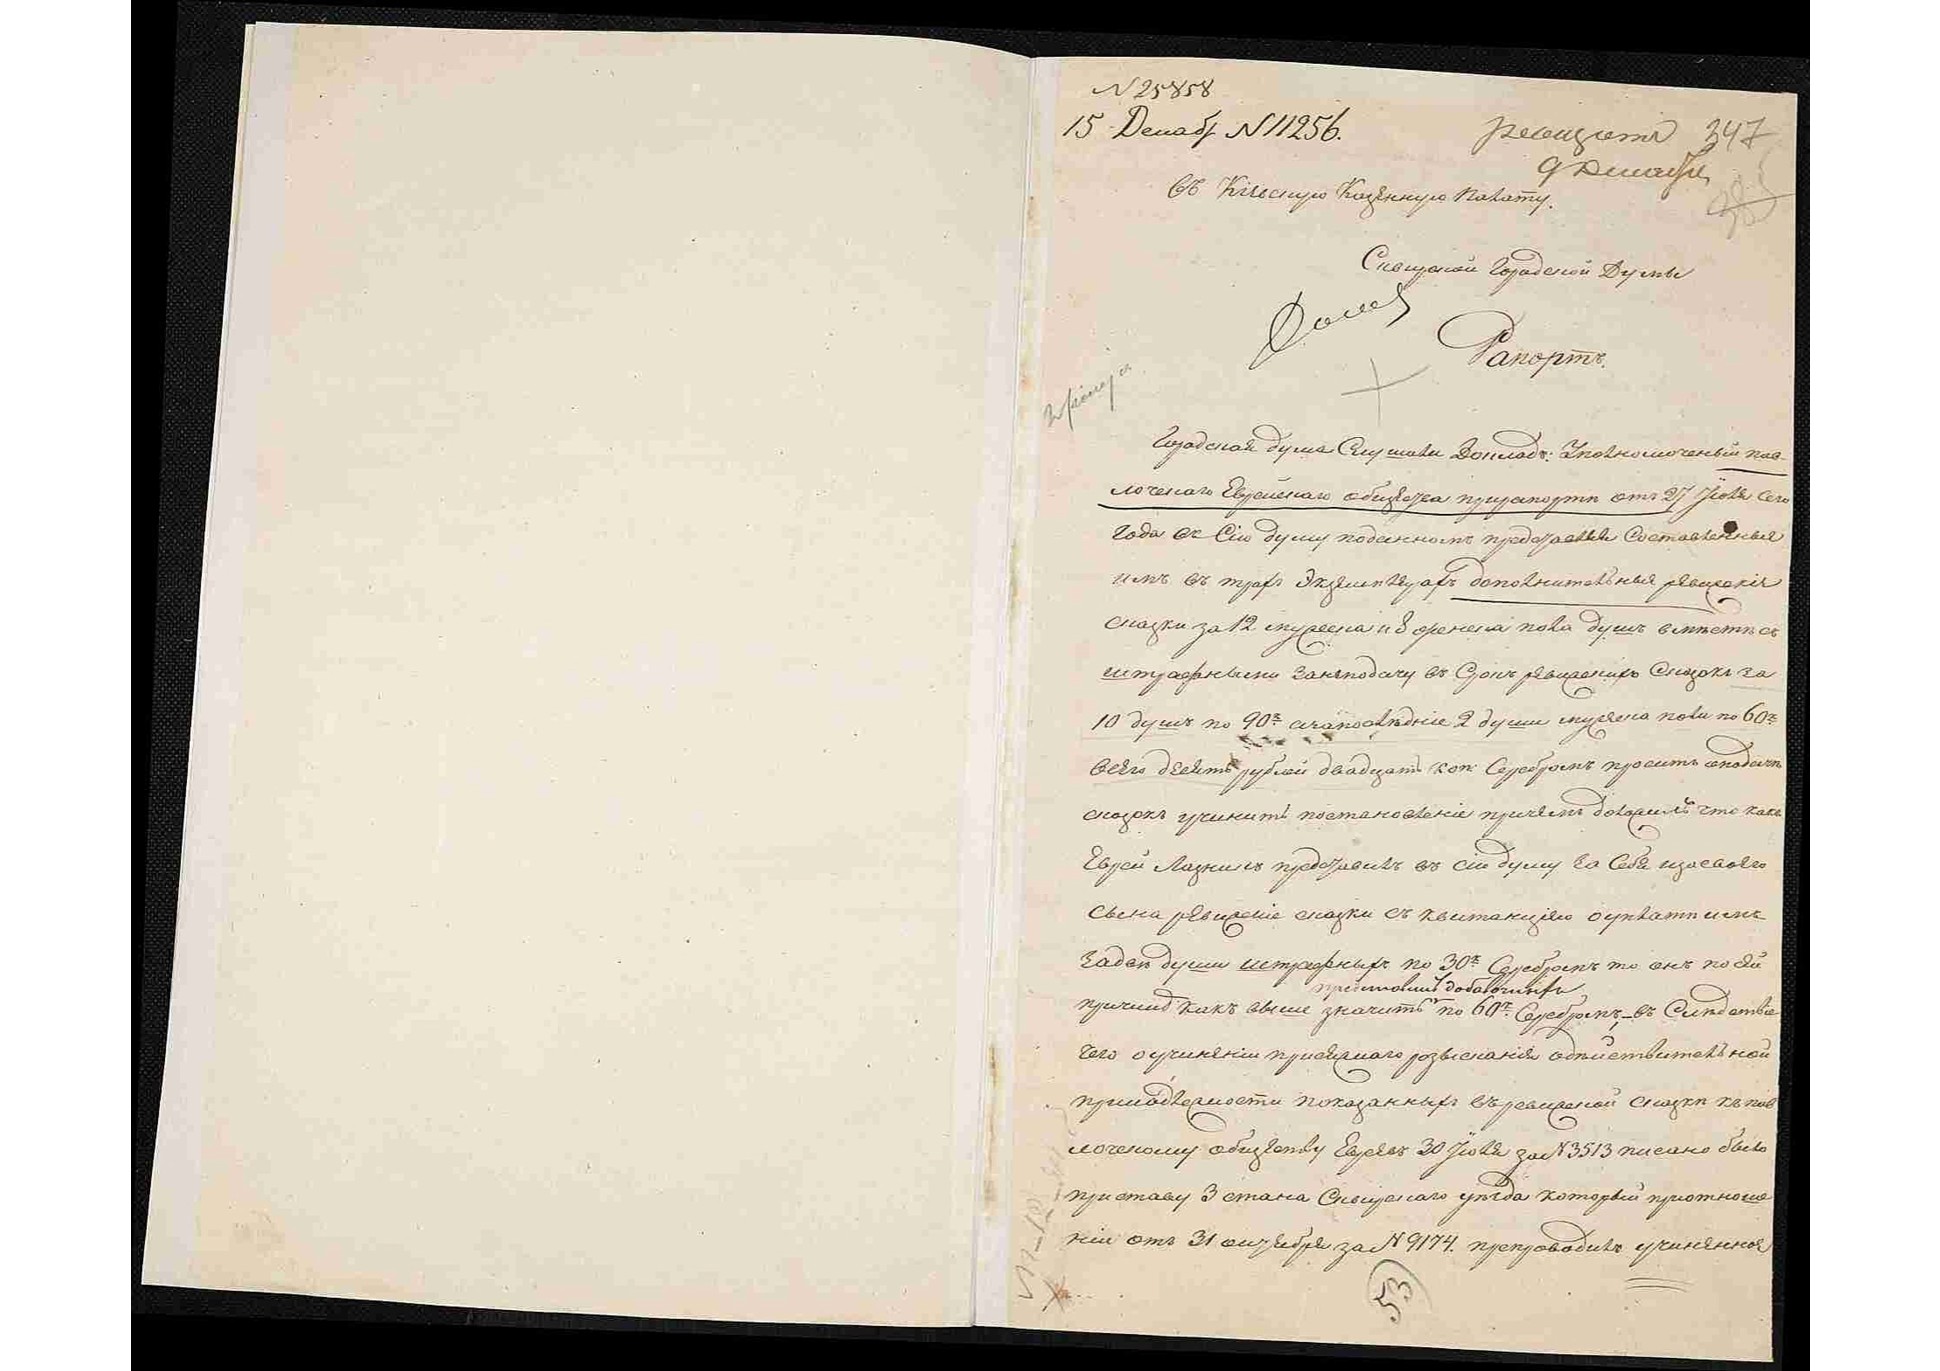 N 25858
15 Декабр N 11256.
347
9 Декабря
Въ Кіевскую Казенную Палату.
Сквирской Городской Думы
Рапортъ.
Городская дума Слушали Докладъ: Уполномоченый пав-
лочскаго Еврейскаго общества прирапорте отъ 27 Іюля сего
года въ Сію думу поданномъ представилъ Составленные
имъ въ трехъ Экземплярахъ дополнительные ревизскія
сказки за 12 мужеска и 8 женска пола душъ вместе съ
штрафными занеподачу въ Срокъ ревизскихъ Сказокъ за
10 душъ по 90 к. азапоследніе 2 души мужеска пола по 60 к.
всего десять рублей двадцать коп: Серебромъ проситъ оподаче
сказокъ учинить постановленіе причемъ что какъ
Еврей представилъ въ сію думу за Себя изасвоего
сына ревизскіе сказки съ квитанціею оуплате имъ
задве души штрафныхъ по 30 к. Серебромъ то онъ по сей
представилъ добавочныхъ
причине какъ выше значитъ по 60 к. Серебромъ, – въ Следствіе
чего оучиненіи розысканія одействительной
принадлежности показанныхъ въ ревизской сказке къ пав
лочскому обществу Евреевъ 30 Іюля за N 3513 писано было
приставу 3 стана Сквирскаго уезда который приотноше
ніи отъ 31 октября за N 9174. препроводилъ учиненное
53